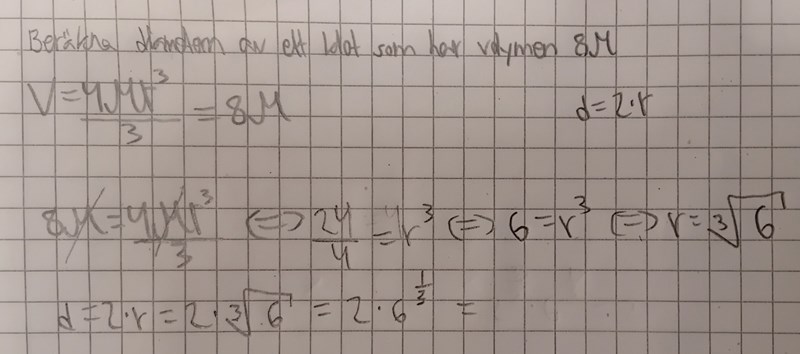 Beräkna diametern av ett klot som har volymen 8π
V = 4πr³/3 = 8π d = 2·r
8π = 4πr³/3 ⇔ 24/4 = r³ ⇔ 6 = r³ ⇔ r = ∛6
d = 2·r = 2·∛6 = 2·6^(1/3) =